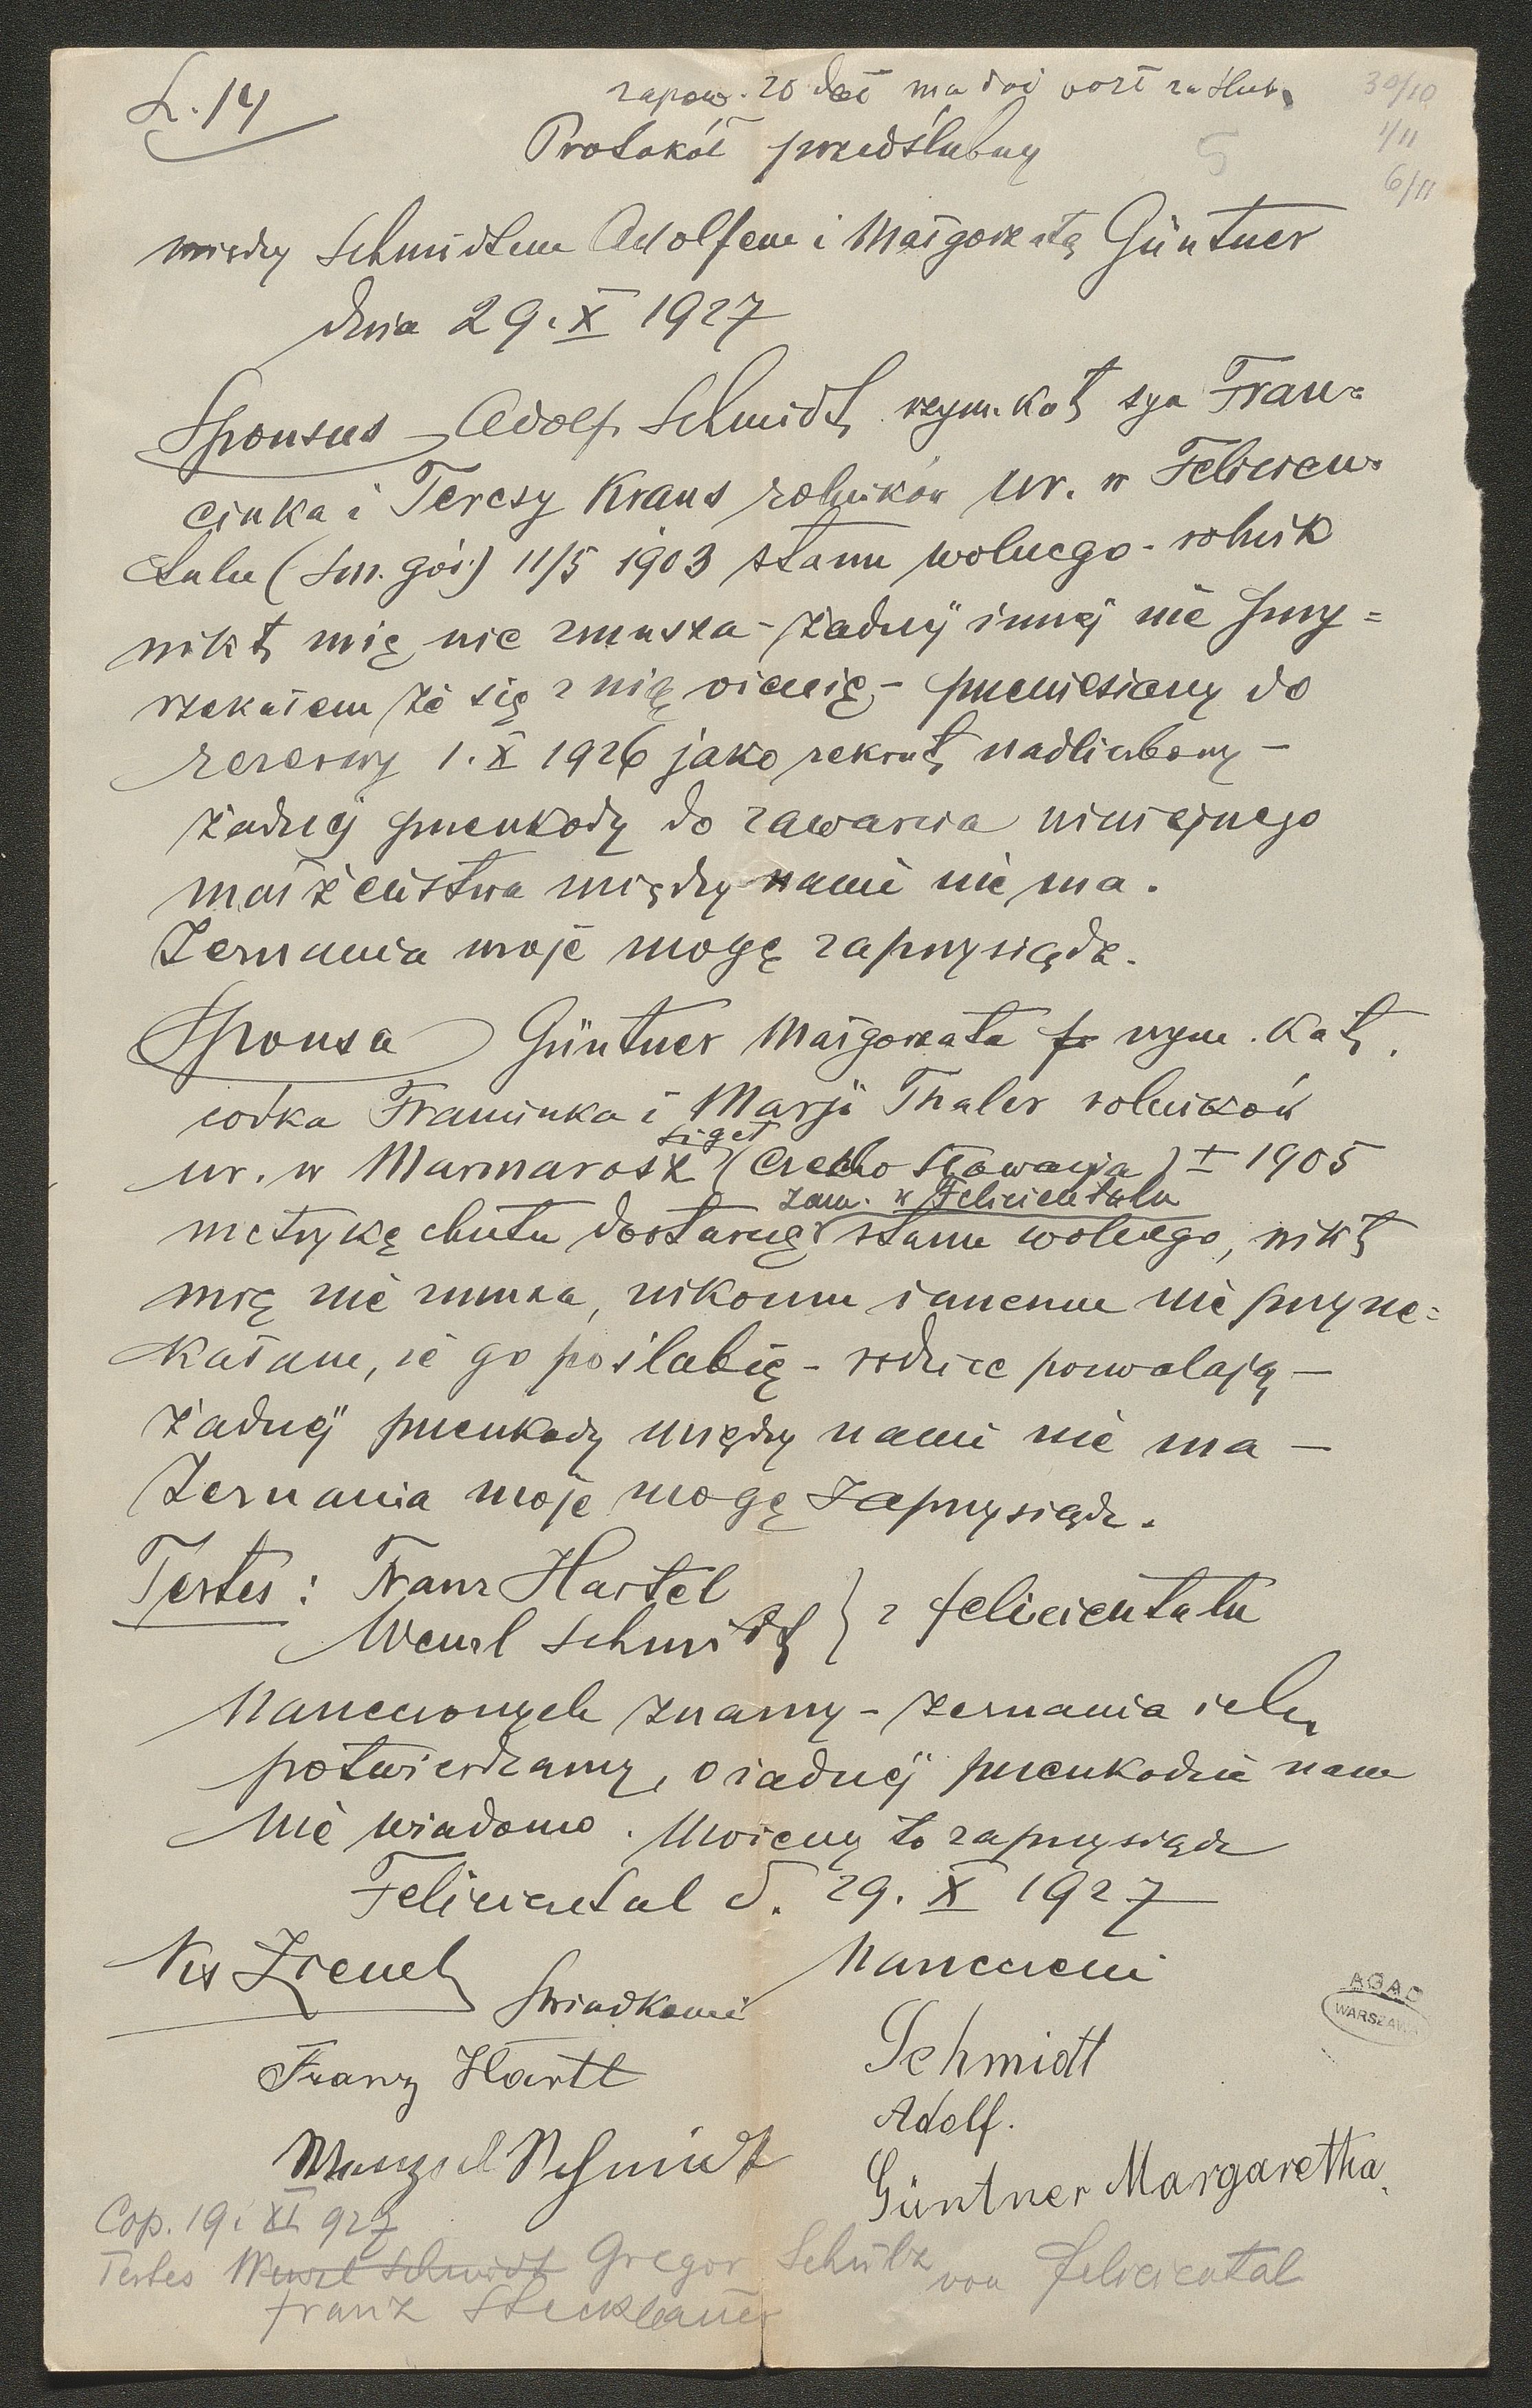 L. 14
zapow. 20 dał ma dać za ślub
30/10
1/11
6/11
5
Protokół przedślubny
między Schmidtem Adolfem i Małgorzatą Güntner
dnia 29. X 1927
Sponsus Adolf Schmidt rzym. kat syn Fran=
ciszka i Teresy Kraus rolników ur. w Felicien-
talu (Sm. gór.) 11/5 1903 stanu wolnego - rolnik
nikt mię nie zmusza - żadnej innej nie przy=
rzekałem że się z nią ożenię - przeniesiony do
rezerwy 1. X 1926 jako rekrut nadliczbowy -
żadnej przeszkody do zawarcia niniejszego
małżeństwa między nami nie ma.
Zeznania moje mogę zaprzysiądz.
Sponsa Güntner Małgorzata rzym. kat.
córka Franciszka i Marji Thaler rolników
ur. w Marmarosz Siget (Czechosłowacja) I 1905
metrykę chrztu dostarczę zam. w Felicientalu stanu wolnego, nikt
mię nie zmusza, nikomu innemu nie przyrze=
kałam, że go poślubię - rodzice pozwalają -
żadnej przeszkody między nami nie ma -
Zeznania moje mogę zaprzysiądz.
Testes: Franz Hartel
Wenzl Schmidt } z Felicientalu
Narzeczonych znamy - zeznania ich
potwierdzamy, o żadnej przeszkodzie nam
nie wiadomo. Możemy to zaprzysiądz
Feliciental d. 29. X 1927
Narzeczeni
Świadkowie
Schmidt
Franz Hartl
Adolf.
Wenzel Schmidt
Güntner Margaretha.
AGAD
WARSZAWA
Cop. 19. XI 927
Testes Wenzl Schmidt Gregor Schulz von Feliciental
Franz Steckbauer